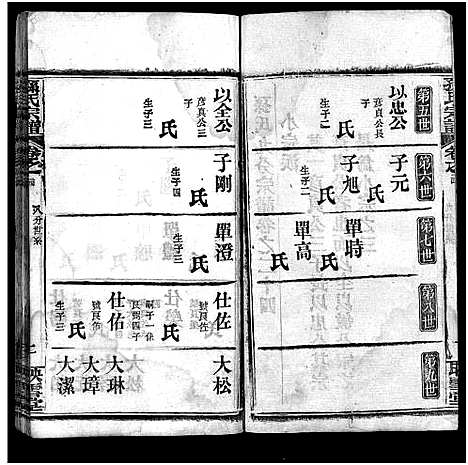 孫氏宗譜
第五世
第六世
第七世
第八世
第九世
以忠公
彦貞公長
子
生子二
氏
子元
子旭
氏
單時
單高
氏
以全公
彦貞公
子
生子三
氏
子剛
氏
生子四
單澄
氏
生子三
仕佐
號良佐
氏
嗣子一保
良弼四子
仕佑
號良佑
氏
生子三
大松
大琳
大璋
大潔
孫氏宗譜
映雪堂